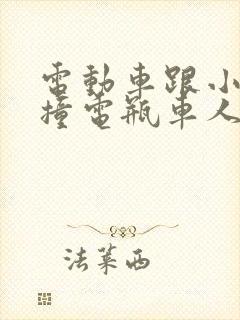 電動車跟小
撞電瓶車人
法萊西